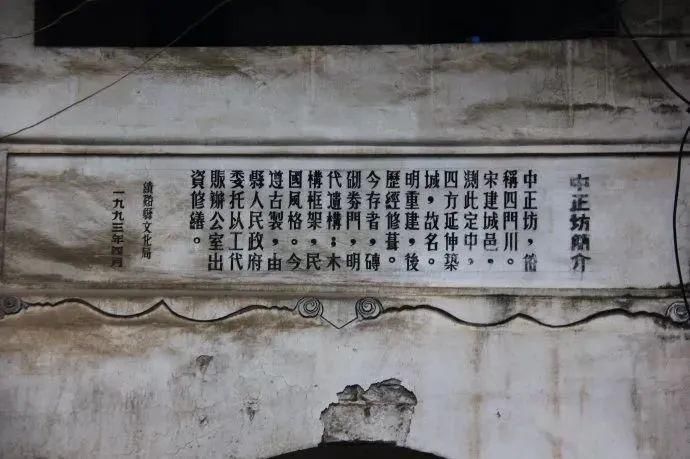 中正坊簡介
中正坊，俗
稱四門川。
宋建城邑，
測此定中，
四方延伸築
城，故名。
明重建，後
歷經修葺。
今存者，磚
砌券門，明
代遺構；木
構框架，民
國風格。今
遵古製，由
縣人民政府
委托以工代
賑辦公室出
資修繕。
績谿縣文化局
一九九三年四月